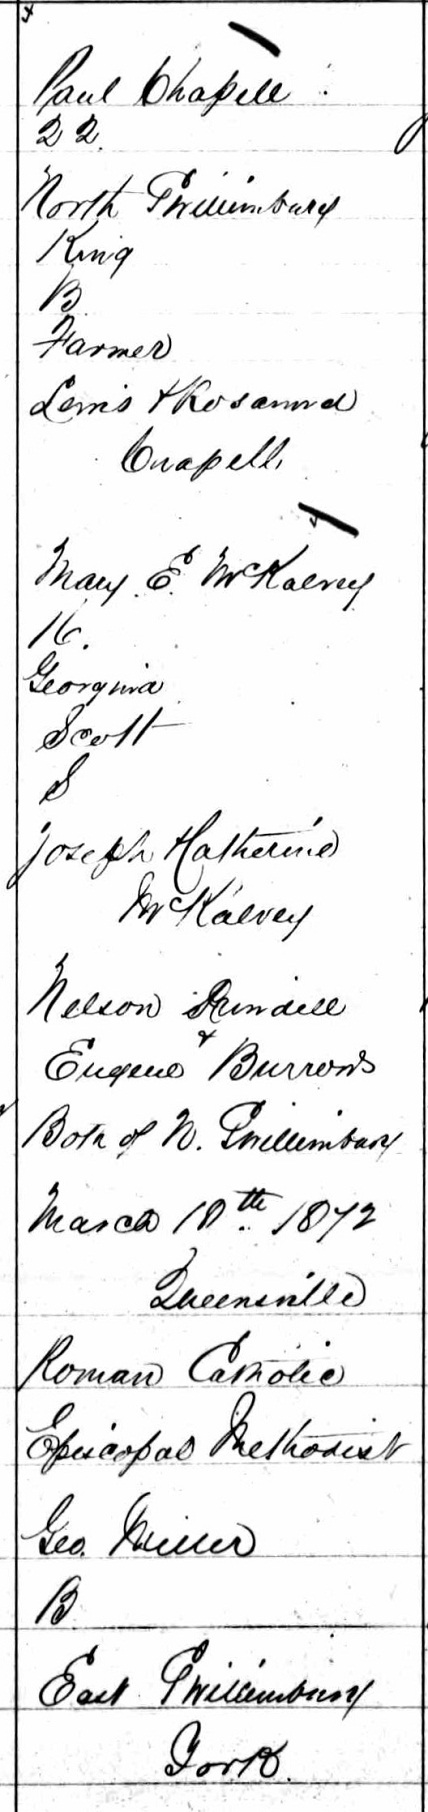 Paul Chapell
22
North Gwillimbury
King
B
Farmer
Lewis & Rosamnd
Chapell
Mary E. McKalvey
16.
Georgina
Scott
S
Joseph Katherine
McKalvey
Nelson Rundell
&
Eugene Burrows
Both of N. Gwillimbury
March 18th 1872
Queensville
Roman Catholic
Episcopal Methodist
Geo. Miller
B
East Gwillimbury
York